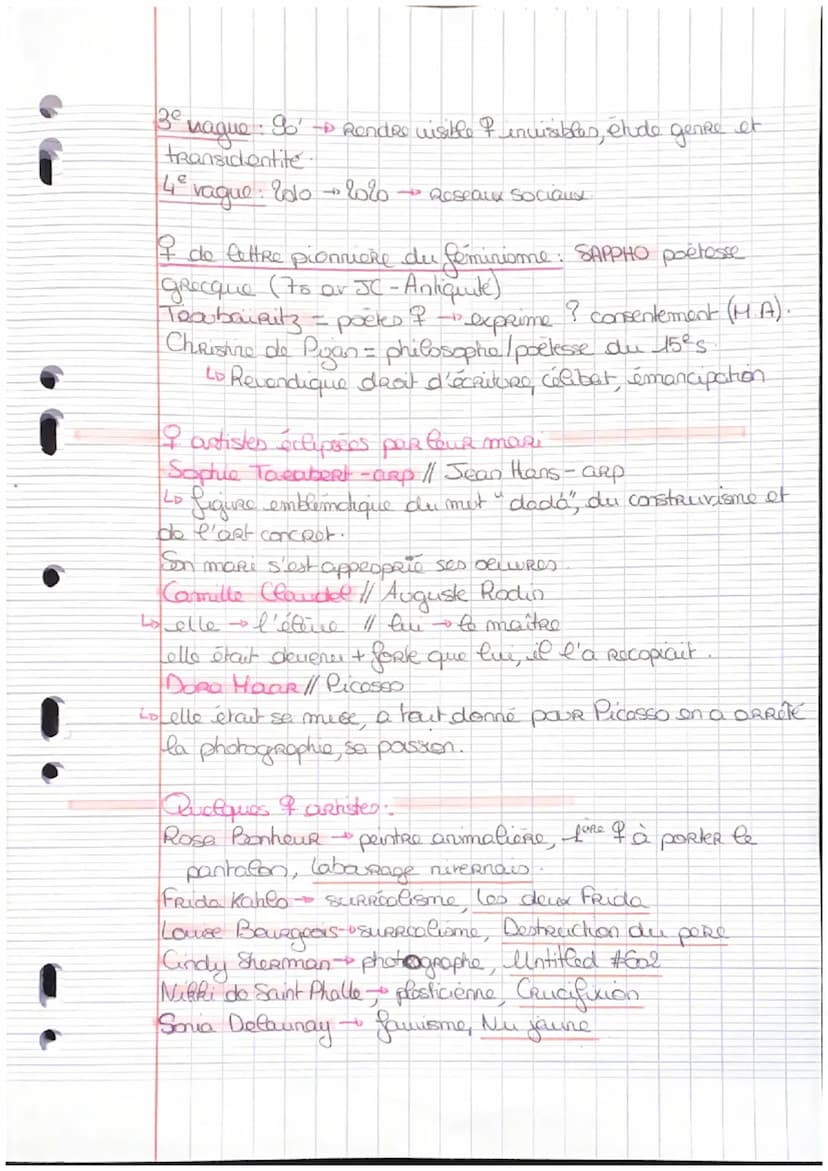 3e vague : 90' → Rendre visible ♀ invisibles, étude genre et
transidentité.
4e vague : 2010 → 2020 → Réseaux sociaux
♀ de lettre pionnière du féminisme : SAPPHO poétesse
grecque (7s av JC - Antiquité)
Troobairitz = poètes ♀ → exprime ? consentement (M.A).
Christine de Pyzan = philosophe/poétesse du 15e s.
↳ Revendique droit d'écriture, célibat, émancipation
♀ artistes éclipsées par leur mari
Sophie Taeabert-arp // Jean Hans-arp
↳ figure emblématique du mvt "dada", du construvisme et
de l'art concret.
Son mari s'est approprié ses oeuvres
Camille Claudel // Auguste Rodin
↳ elle → l'élève // lui → le maître
elle était devenu + forte que lui, il l'a recopiait.
Dora Maar // Picasso
↳ elle était se muse, a tout donné pour Picasso en a arrêté
la photographie, sa passion.
Quelques ♀ artistes :
Rosa Bonheur → peintre animalière, 1ère ♀ à porter le
pantalon, Labourage nivernais.
Frida Kahlo → surréalisme, Les deux Frida
Louise Bourgeois → surréalisme, Destruction du père
Cindy Sherman → photographe, Untitled #602
Nikki de Saint Phalle → plasticienne, Crucifixion
Sonia Delaunay → fauvisme, Nu jaune